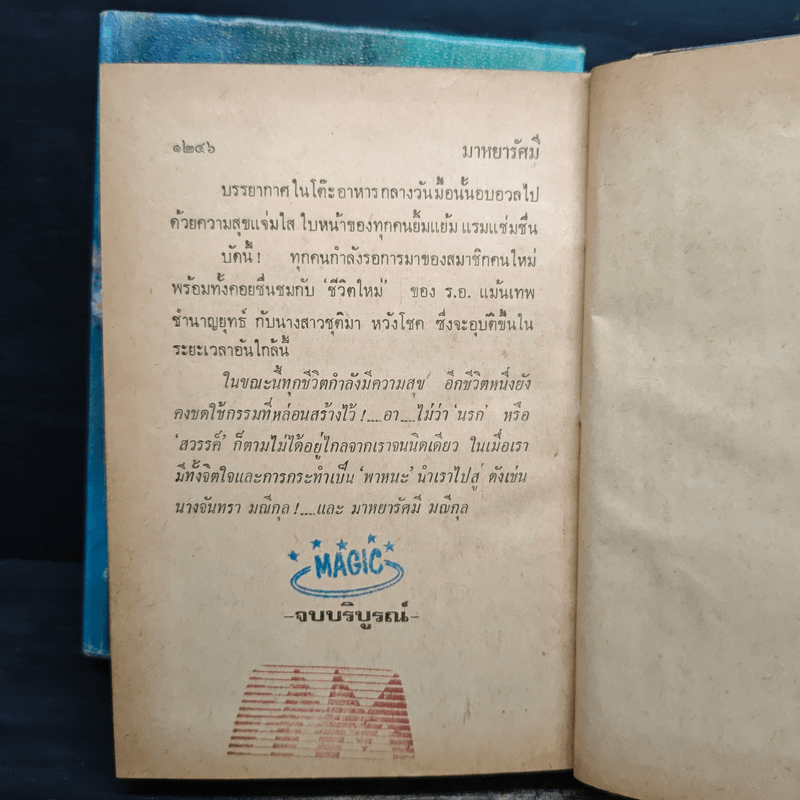 ๑๒๔๖
มาหยารัศมี
บรรยากาศในโต๊ะอาหารกลางวันมื้อนั้นอบอวลไป
ด้วยความสุขแจ่มใส ใบหน้าของทุกคนยิ้มแย้ม แรมแช่มชื่น
บัดนี้! ทุกคนกำลังรอการมาของสมาชิกคนใหม่
พร้อมทั้งคอยชื่นชมกับ ‘ชีวิตใหม่’ ของ ร.อ. แม้นเทพ
ชำนาญยุทธ์ กับนางสาวชุติมา หวังโชค ซึ่งจะอุบัติขึ้นใน
ระยะเวลาอันใกล้นี้
ในขณะนี้ทุกชีวิตกำลังมีความสุข อีกชีวิตหนึ่งยัง
คงชดใช้กรรมที่หล่อนสร้างไว้!....อา....ไม่ว่า ‘นรก’ หรือ
‘สวรรค์’ ก็ตามไม่ได้อยู่ไกลจากเราจนนิดเดียว ในเมื่อเรา
มีทั้งจิตใจและการกระทำเป็น ‘พาหนะ’ นำเราไปสู่ ดังเช่น
นางจันทรา มณีกุล!....และ มาหยารัศมี มณีกุล
MAGIC
-จบบริบูรณ์-
AM